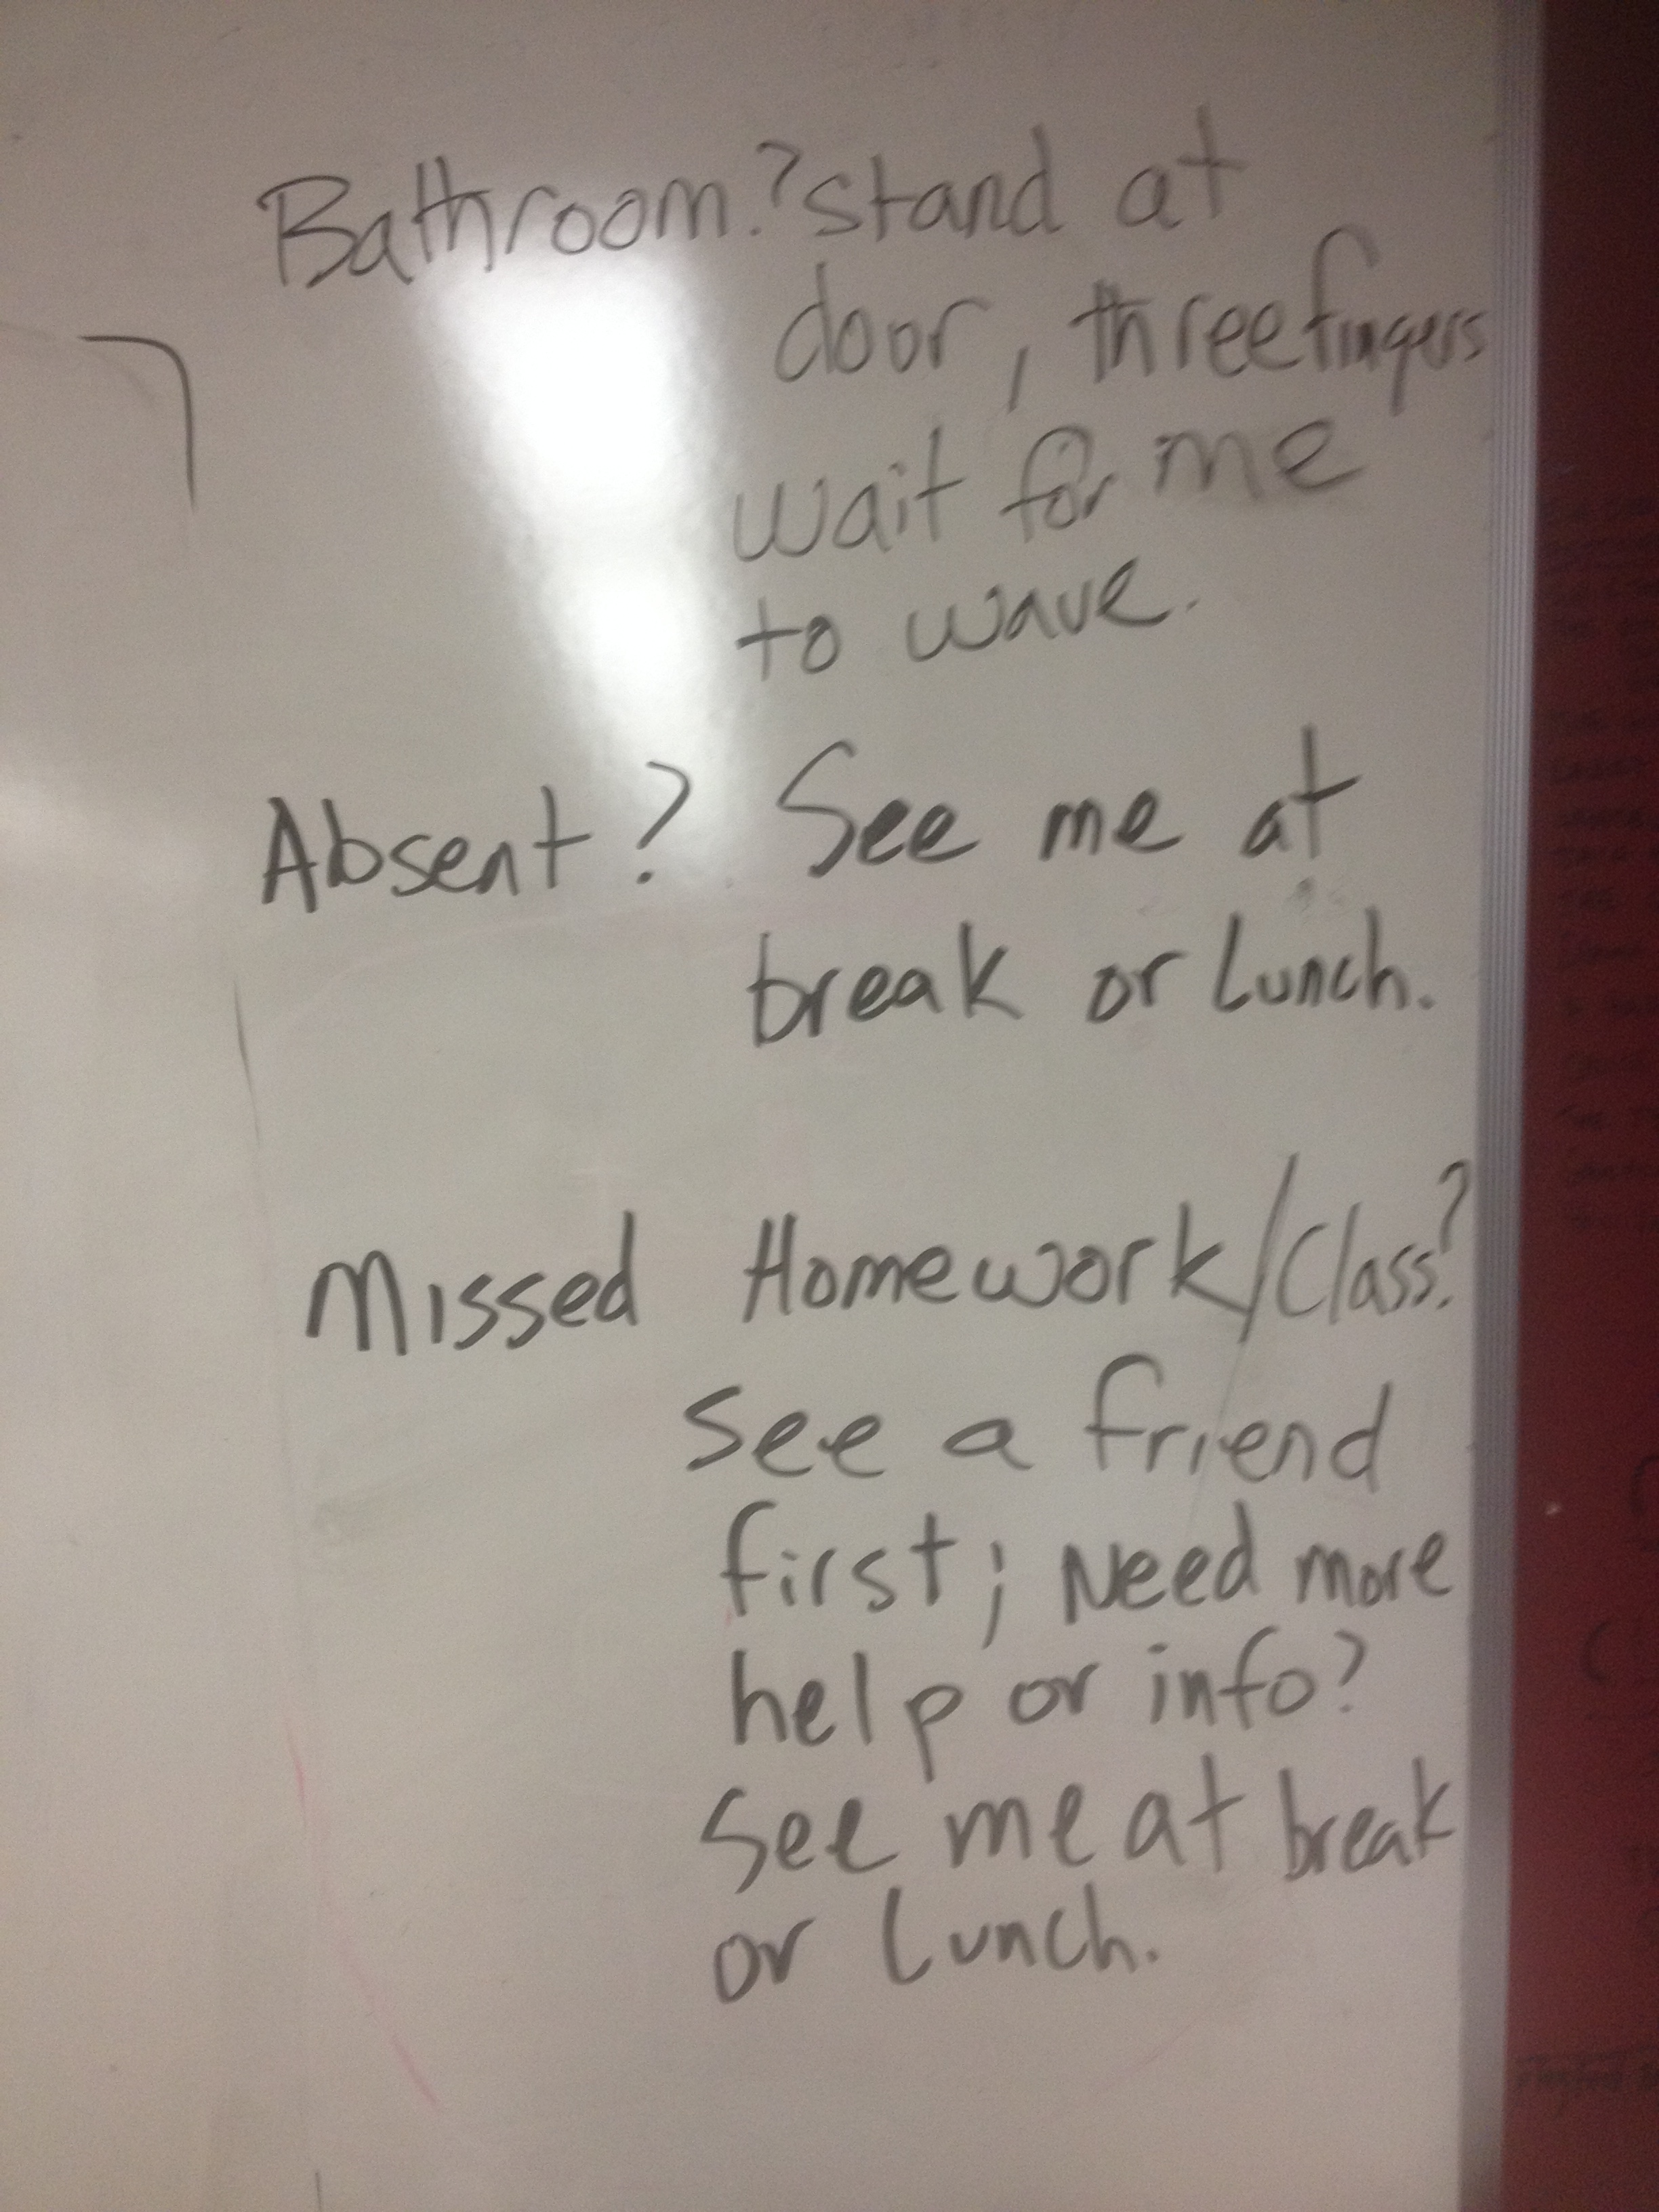 Bathroom? stand at
door, three fingers
wait for me
to wave.
Absent? See me at
break or Lunch.
Missed Homework/Class?
See a friend
first; Need more
help or info?
See me at break
or Lunch.